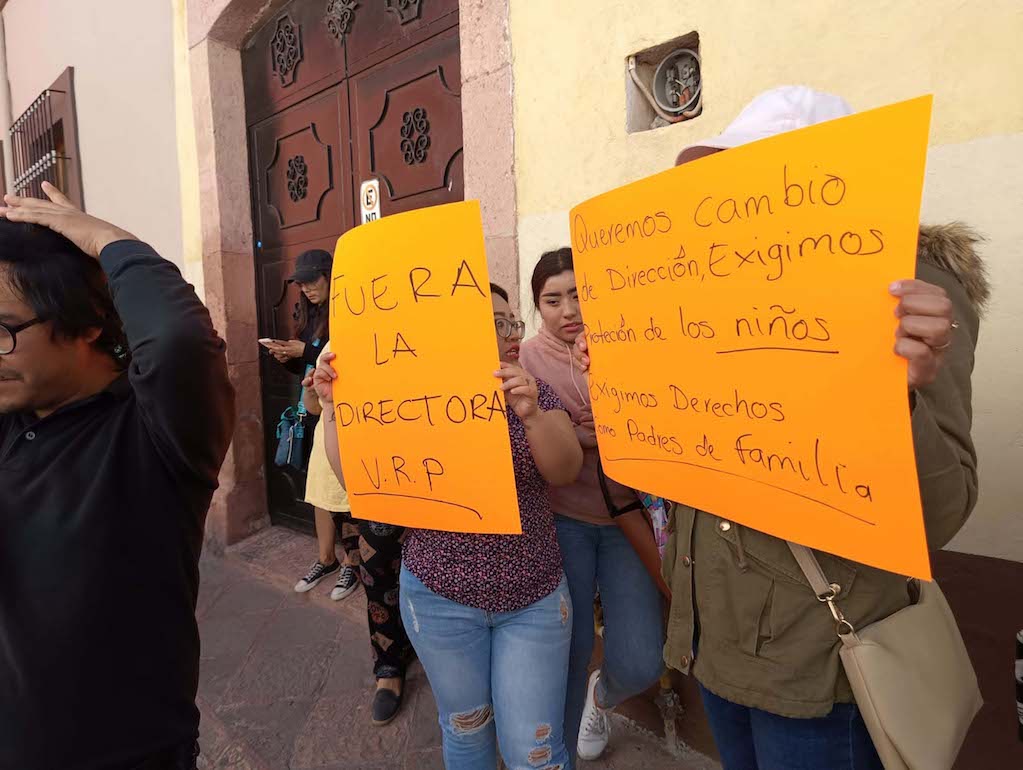 NO
FUERA
LA
DIRECTORA
V.R.P
Queremos cambio
de Dirección, Exigimos
Protección de los niños
Exigimos Derechos
como Padres de familia